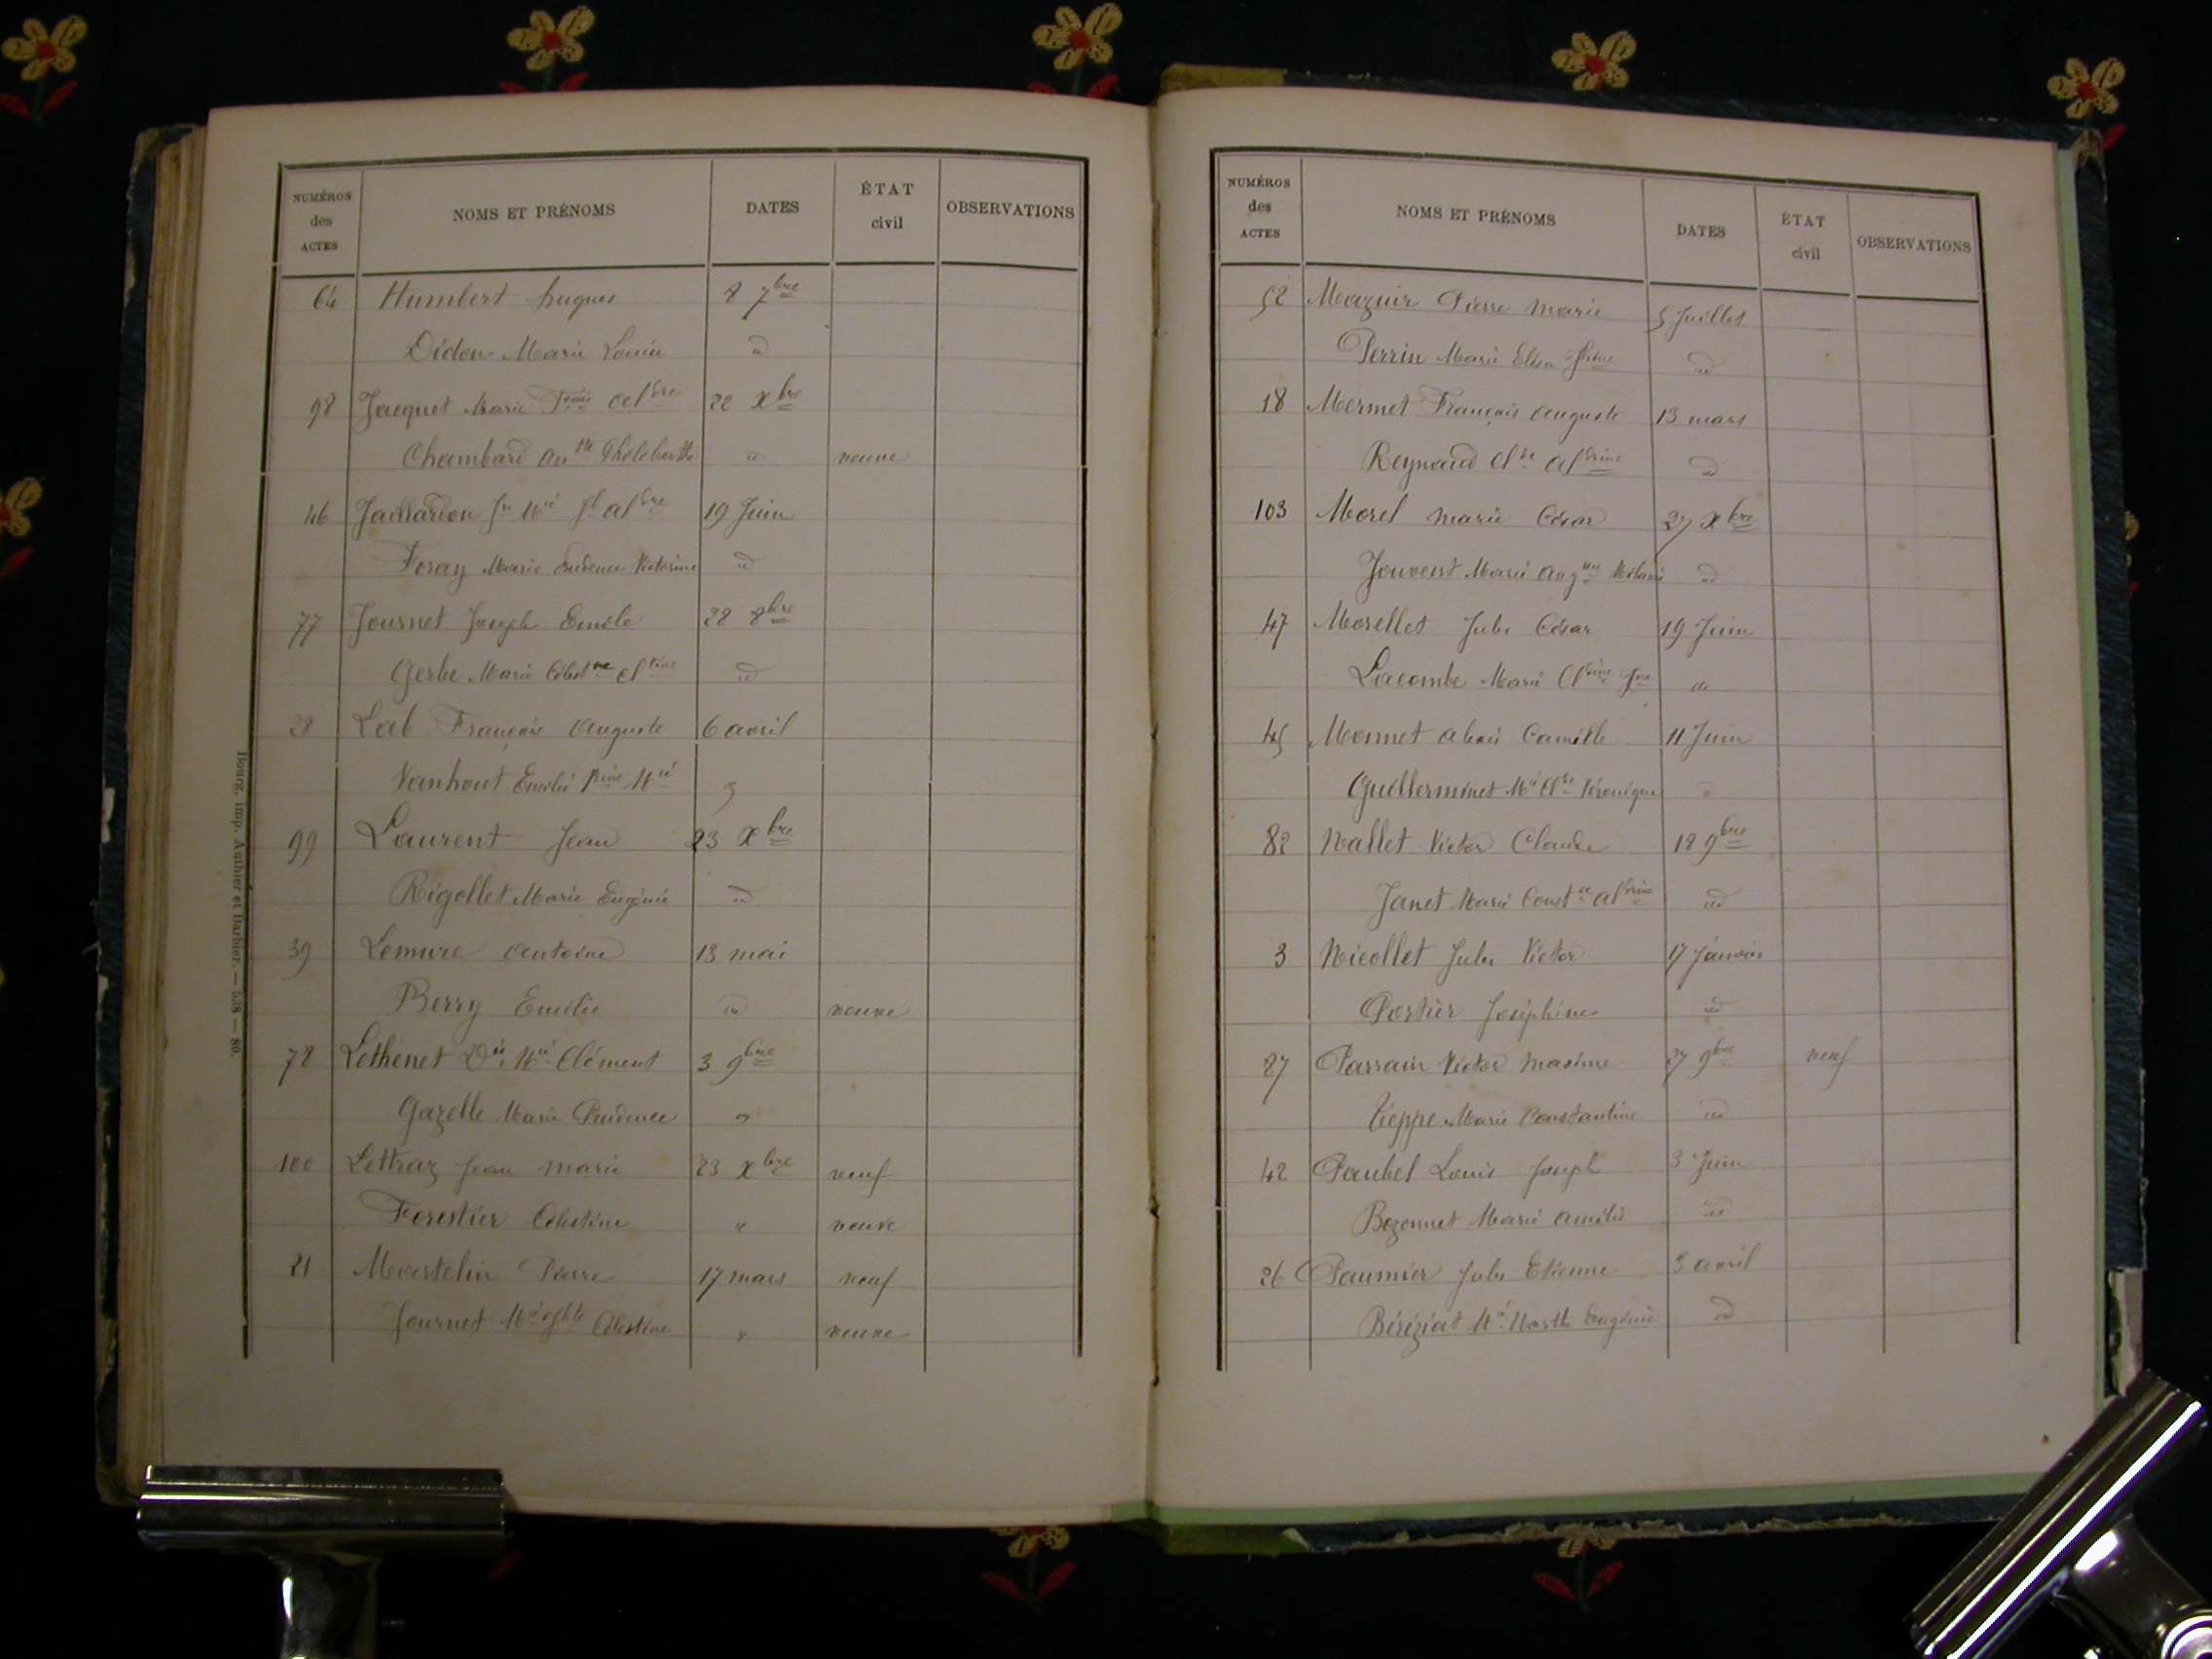 NUMÉROS des ACTES NOMS ET PRÉNOMS DATES ÉTAT civil OBSERVATIONS
64 Humbert hugues 8 7bre
Didon Marie Louise id
98 Jacquet Marie aldre 22 Xbre
Chambard id veuve
46 Jaillardon 19 Juin
Feray Marie Prudence Victorine id
77 Journet Joseph Emile 28 8bre
Gerbe Marie id
28 Lab François Auguste 6 avril
Vanhout Emélie
99 Laurent Jean 23 Xbre
Rigollet Marie Eugénie id
39 Lemure Antoine 13 mai
Berry Emélie id veuve
78 Lethenet Clément 3 9bre
Gazelle Marie Prudence "
100 Lettraz Jean marie 23 Xbre veuf
Forestier Célestine " veuve
21 Martelin Pierre 17 mars veuf
Journet Célestine " veuve
Bourg, imp. Authier et Barbier. — 538 — 80.
NUMÉROS des ACTES NOMS ET PRÉNOMS DATES ÉTAT civil OBSERVATIONS
52 Mazuir Pierre Marie 5 Juillet
Perrin Marie Elisa id
18 Mermet François auguste 13 mars
Reynaud id
103 Morel marie César 27 Xbre
Jouvent Marie id
47 Morellet Jules César 19 Juin
Lacombe Marie id
45 Monnet Camille 11 Juin
Guillerminet Véronique
82 Nallet Victor Claude 18 9bre
Janet Marie id
3 Nicollet Jules Victor 17 Janvier
Portier Joséphine id
87 Parrain Victor Maxime 27 9bre veuf
Tieppe Marie Constantine id
42 Paubel Louis Joseph 3 Juin
Bozonnet Marie amélie id
26 Paumier Jules Etienne 3 avril
Béréziat Mie Marthe Eugénie id